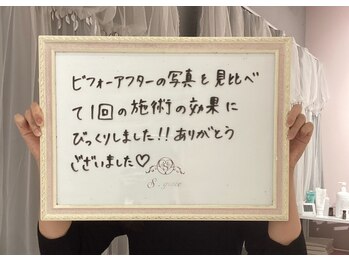 ビフォーアフターの写真を見比べ
て1回の施術の効果に
びっくりしました!!ありがとう
ございました♡
S. grace